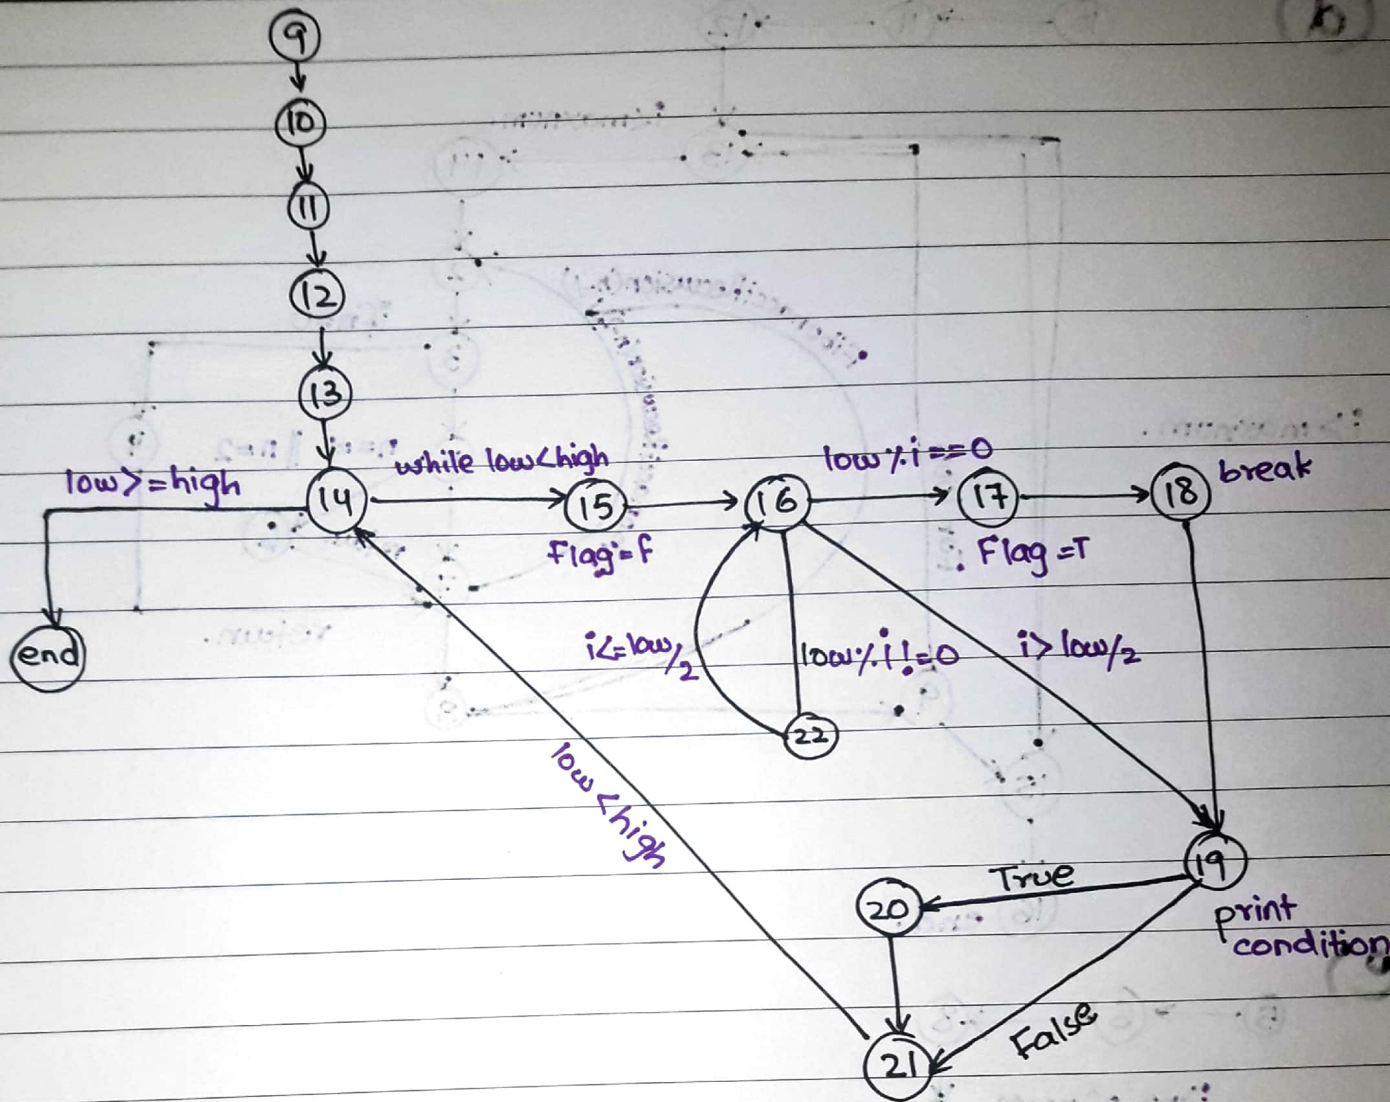 9
10
11
12
13
low>=high
14
while low<high
15
Flag=f
16
low%i==0
17
Flag=T
18
break
end
i<=low/2
low%i!=0
i>low/2
22
low<high
19
True
20
print
condition
False
21